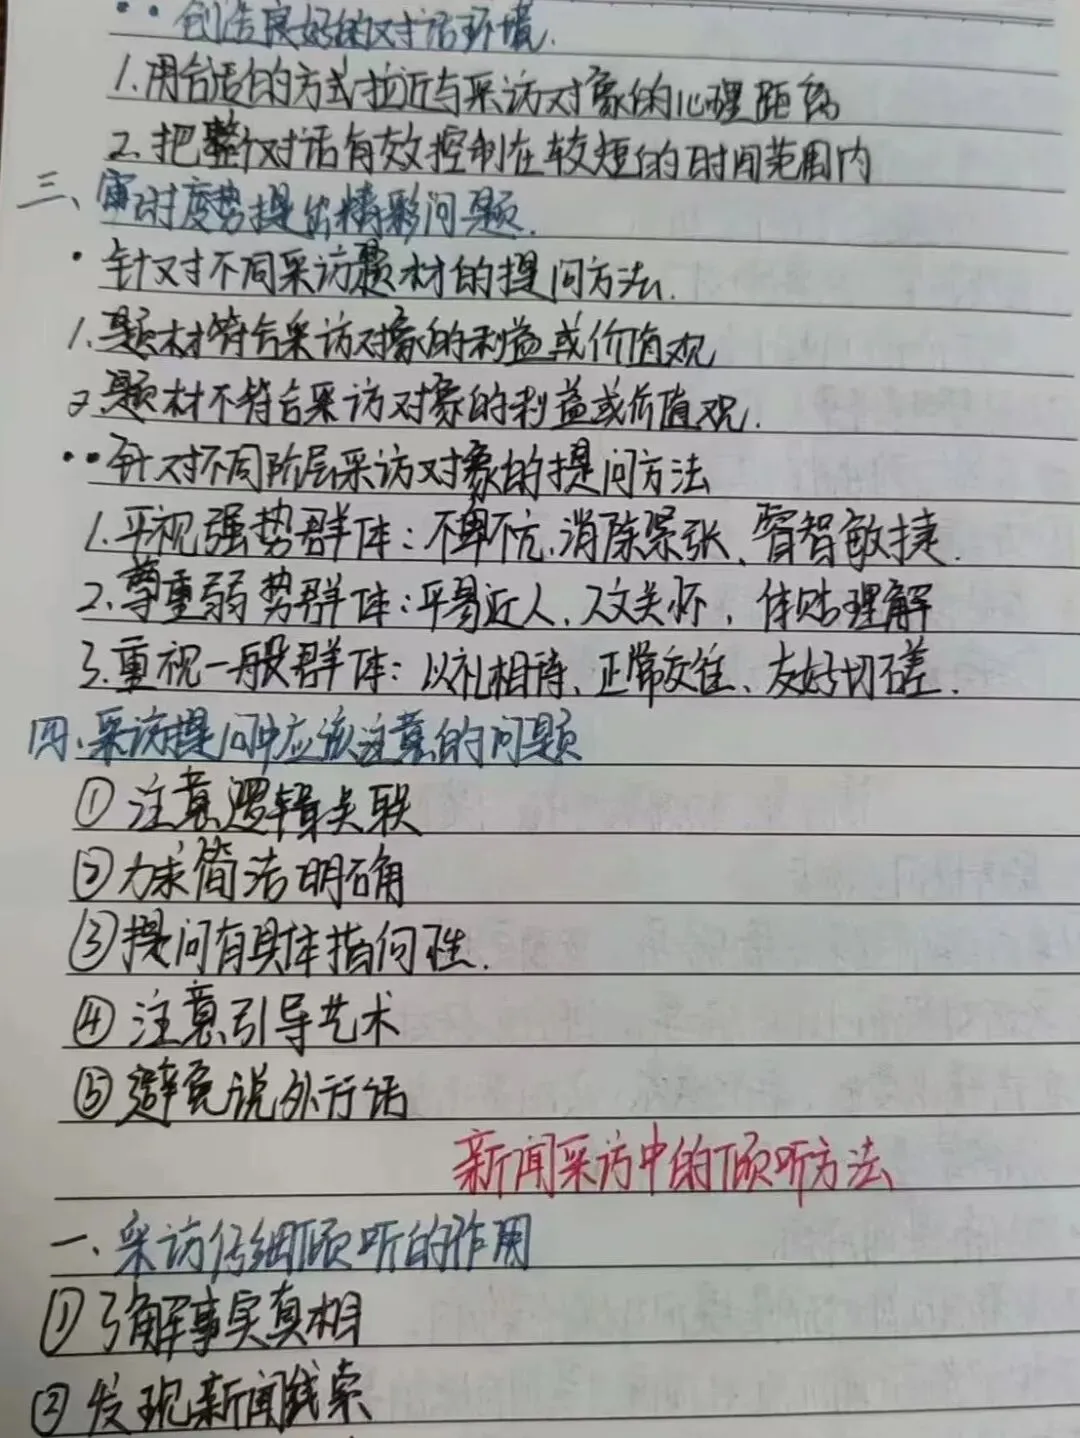 ··创造良好的对话环境.
1.用合适的方式拉近与采访对象的心理距离
2.把整个对话有效控制在较短的时间范围内
三、审时度势提出精彩问题.
·针对不同采访题材的提问方法.
1.题材符合采访对象的利益或价值观
2.题材不符合采访对象的利益或价值观.
··针对不同阶层采访对象的提问方法
1.平视强势群体:不卑不亢、消除紧张、睿智敏捷.
2.尊重弱势群体:平易近人、人文关怀,体贴理解
3.重视一般群体:以礼相待、正常交往、友好切磋.
四、采访提问中应该注意的问题
①注意逻辑关联
②力求简洁明确
③提问有具体指向性.
④注意引导艺术
⑤避免说外行话
新闻采访中的倾听方法
一、采访仔细倾听的作用
①了解事实真相
②发现新闻线索